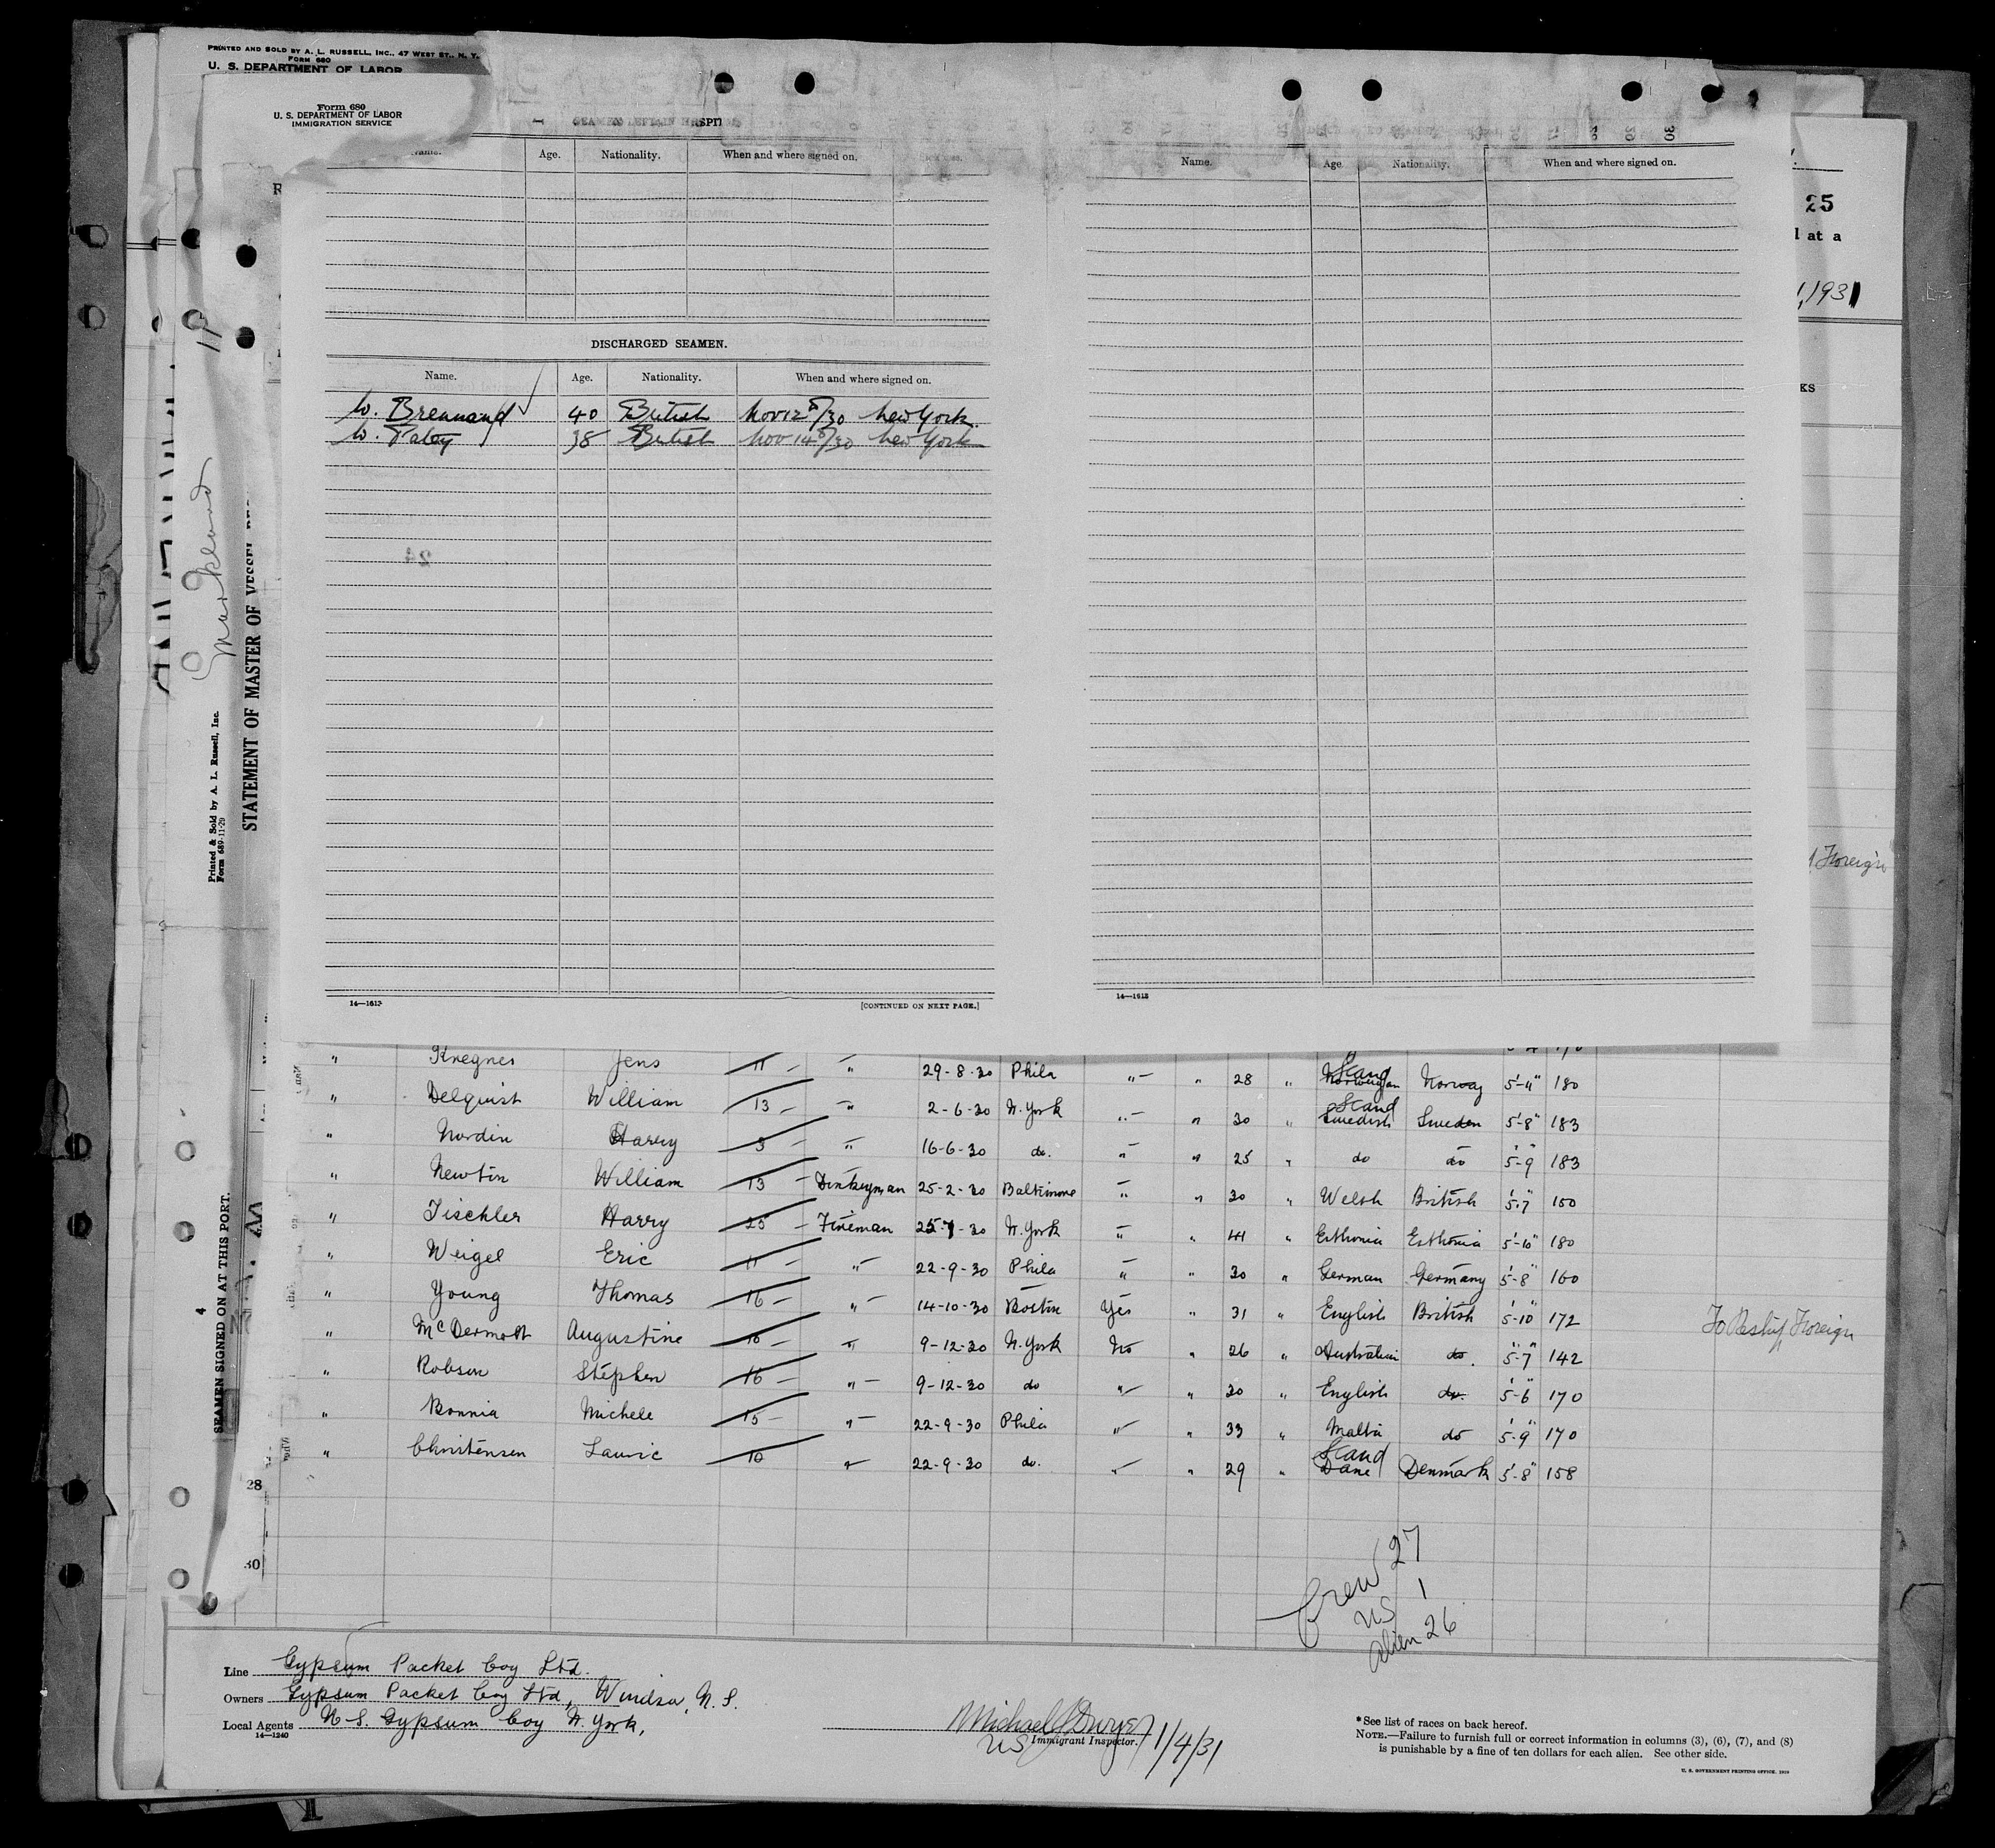 PRINTED AND SOLD BY A. L. RUSSELL, INC., 47 WEST ST., N. Y.
FORM 680
U. S. DEPARTMENT OF LABOR
Form 680
U. S. DEPARTMENT OF LABOR
IMMIGRATION SERVICE
Age. Nationality. When and where signed on.
Name. Age. Nationality. When and where signed on.
25
at a
1931
DISCHARGED SEAMEN.
Name. Age. Nationality. When and where signed on.
W. Brennand 40 British Nov 12th/30 New York
W. 38 British Nov 14th/30 New York
24
Markland
Printed & Sold by A. L. Russell, Inc.
Form 689-11-29
STATEMENT OF MASTER OF VESSEL
SEAMEN SIGNED ON AT THIS PORT.
4
Foreign
14—1613 [CONTINUED ON NEXT PAGE.] 14—1613
" Jens 11 — " 29-8-30 Phila " — " 28 " Scand Norwegian Norway 5'-11" 180
" Delquist William 13 — " 2-6-30 N. York " — " 30 " Scand Swedish Sweden 5'-8" 183
" Nordin Harry 3 — " 16-6-30 do. " " 25 " do do 5'-9" 183
" Newtin William 13 — Donkeyman 25-2-30 Baltimore " " 30 " Welsh British 5'-7" 150
" Tischler Harry 25 — Fireman 25-7-30 N. York " " 44 " Esthonia Esthonia 5'-10" 180
" Weigel Eric 11 — " 22-9-30 Phila " " 30 " German Germany 5'-8" 160
" Young Thomas 16 — " 14-10-30 Boston Yes " 31 " English British 5'-10" 172 To Reship Foreign
" McDermott Augustine 10 — " 9-12-30 N. York No " 26 " Australian do. 5'-7" 142
" Robson Stephen 16 — " 9-12-30 do " " 30 " English do. 5'-6" 170
" Bonnia Michele 15 — " 22-9-30 Phila " " 33 " Malta do 5'-9" 170
" Christensen Lauric 10 " 22-9-30 do. " " 29 " Scand Dane Denmark 5'-8" 158
28
30
Crew 27
US 1
Alien 26
Line Gypsum Packet Coy Ltd.
Owners Gypsum Packet Coy Ltd, Windsor, N. S.
Local Agents U. S. Gypsum Coy N. York,
14—1240
Michael J Dwyer
US Immigrant Inspector. 1/4/31
*See list of races on back hereof.
NOTE.—Failure to furnish full or correct information in columns (3), (6), (7), and (8)
is punishable by a fine of ten dollars for each alien. See other side.
U. S. GOVERNMENT PRINTING OFFICE: 1929